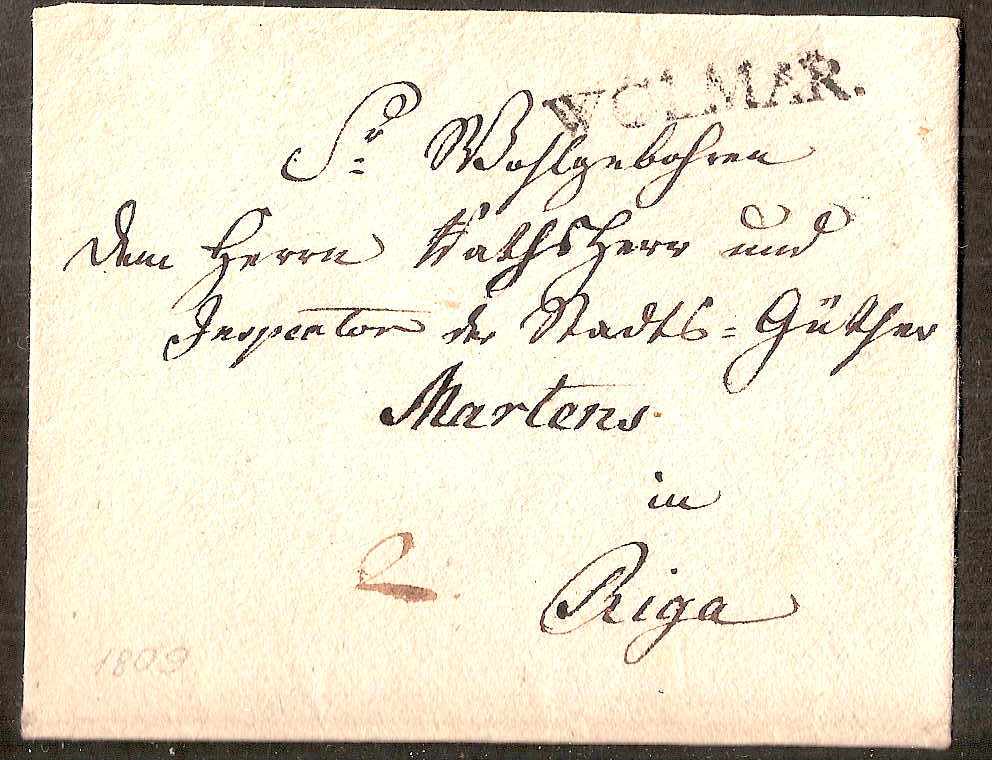 WOLMAR.
Sr Wohlgebohren
dem Herrn RathsHerr und
Inspector der Stadts=Güther
Martens.
in
2.
Riga
1809